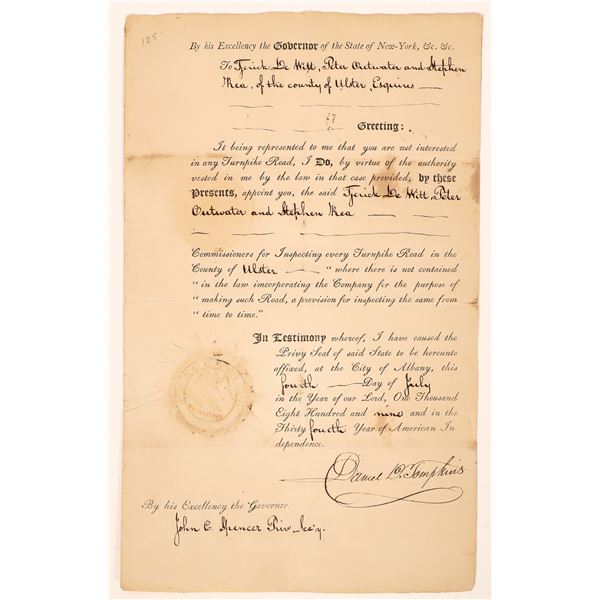 125
By his Excellency the Governor of the State of New-York, &c. &c.
To Tjerick De Witt, Peter Outwater and Stephen
Nea, of the county of Ulster, Esquires
Greeting:
It being represented to me that you are not interested
in any Turnpike Road, I Do, by virtue of the authority
vested in me by the law in that case provided, by these
Presents, appoint you, the said Tjerick De Witt, Peter
Outwater and Stephen Nea
Commissioners for Inspecting every Turnpike Road in the
County of Ulster " where there is not contained
" in the law incorporating the Company for the purpose of
" making such Road, a provision for inspecting the same from
" time to time."
In Testimony whereof, I have caused the
Privy Seal of said State to be hereunto
affixed, at the City of Albany, this
fourth Day of July
in the Year of our Lord, One Thousand
Eight Hundred and nine and in the
Thirty fourth Year of American In
dependence.
Daniel D. Tompkins
By his Excellency the Governor.
John C. Spencer Priv. Sec'y.